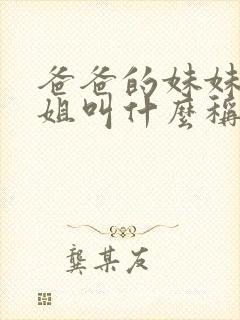 爸爸的妹妹
姐叫什麼稱
龔某友